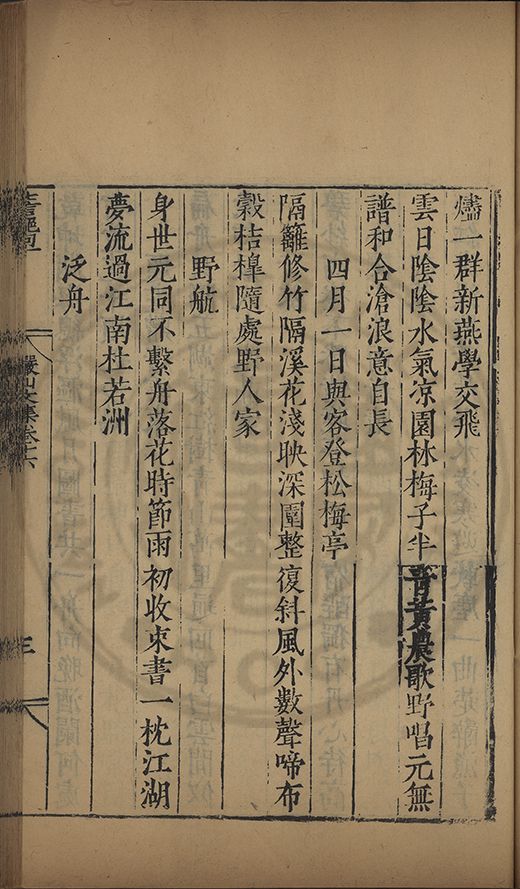 燼一群新燕學交飛
雲日陰陰水氣凉園林梅子半青黃農歌野唱元無
譜和合滄浪意自長
四月一日與客登松梅亭
隔籬修竹隔溪花淺映深圍整復斜風外數聲啼布
穀桔橰隨處野人家
野航
身世元同不繫舟落花時節雨初收束書一枕江湖
夢流過江南杜若洲
泛舟
儼山文集卷十六
三